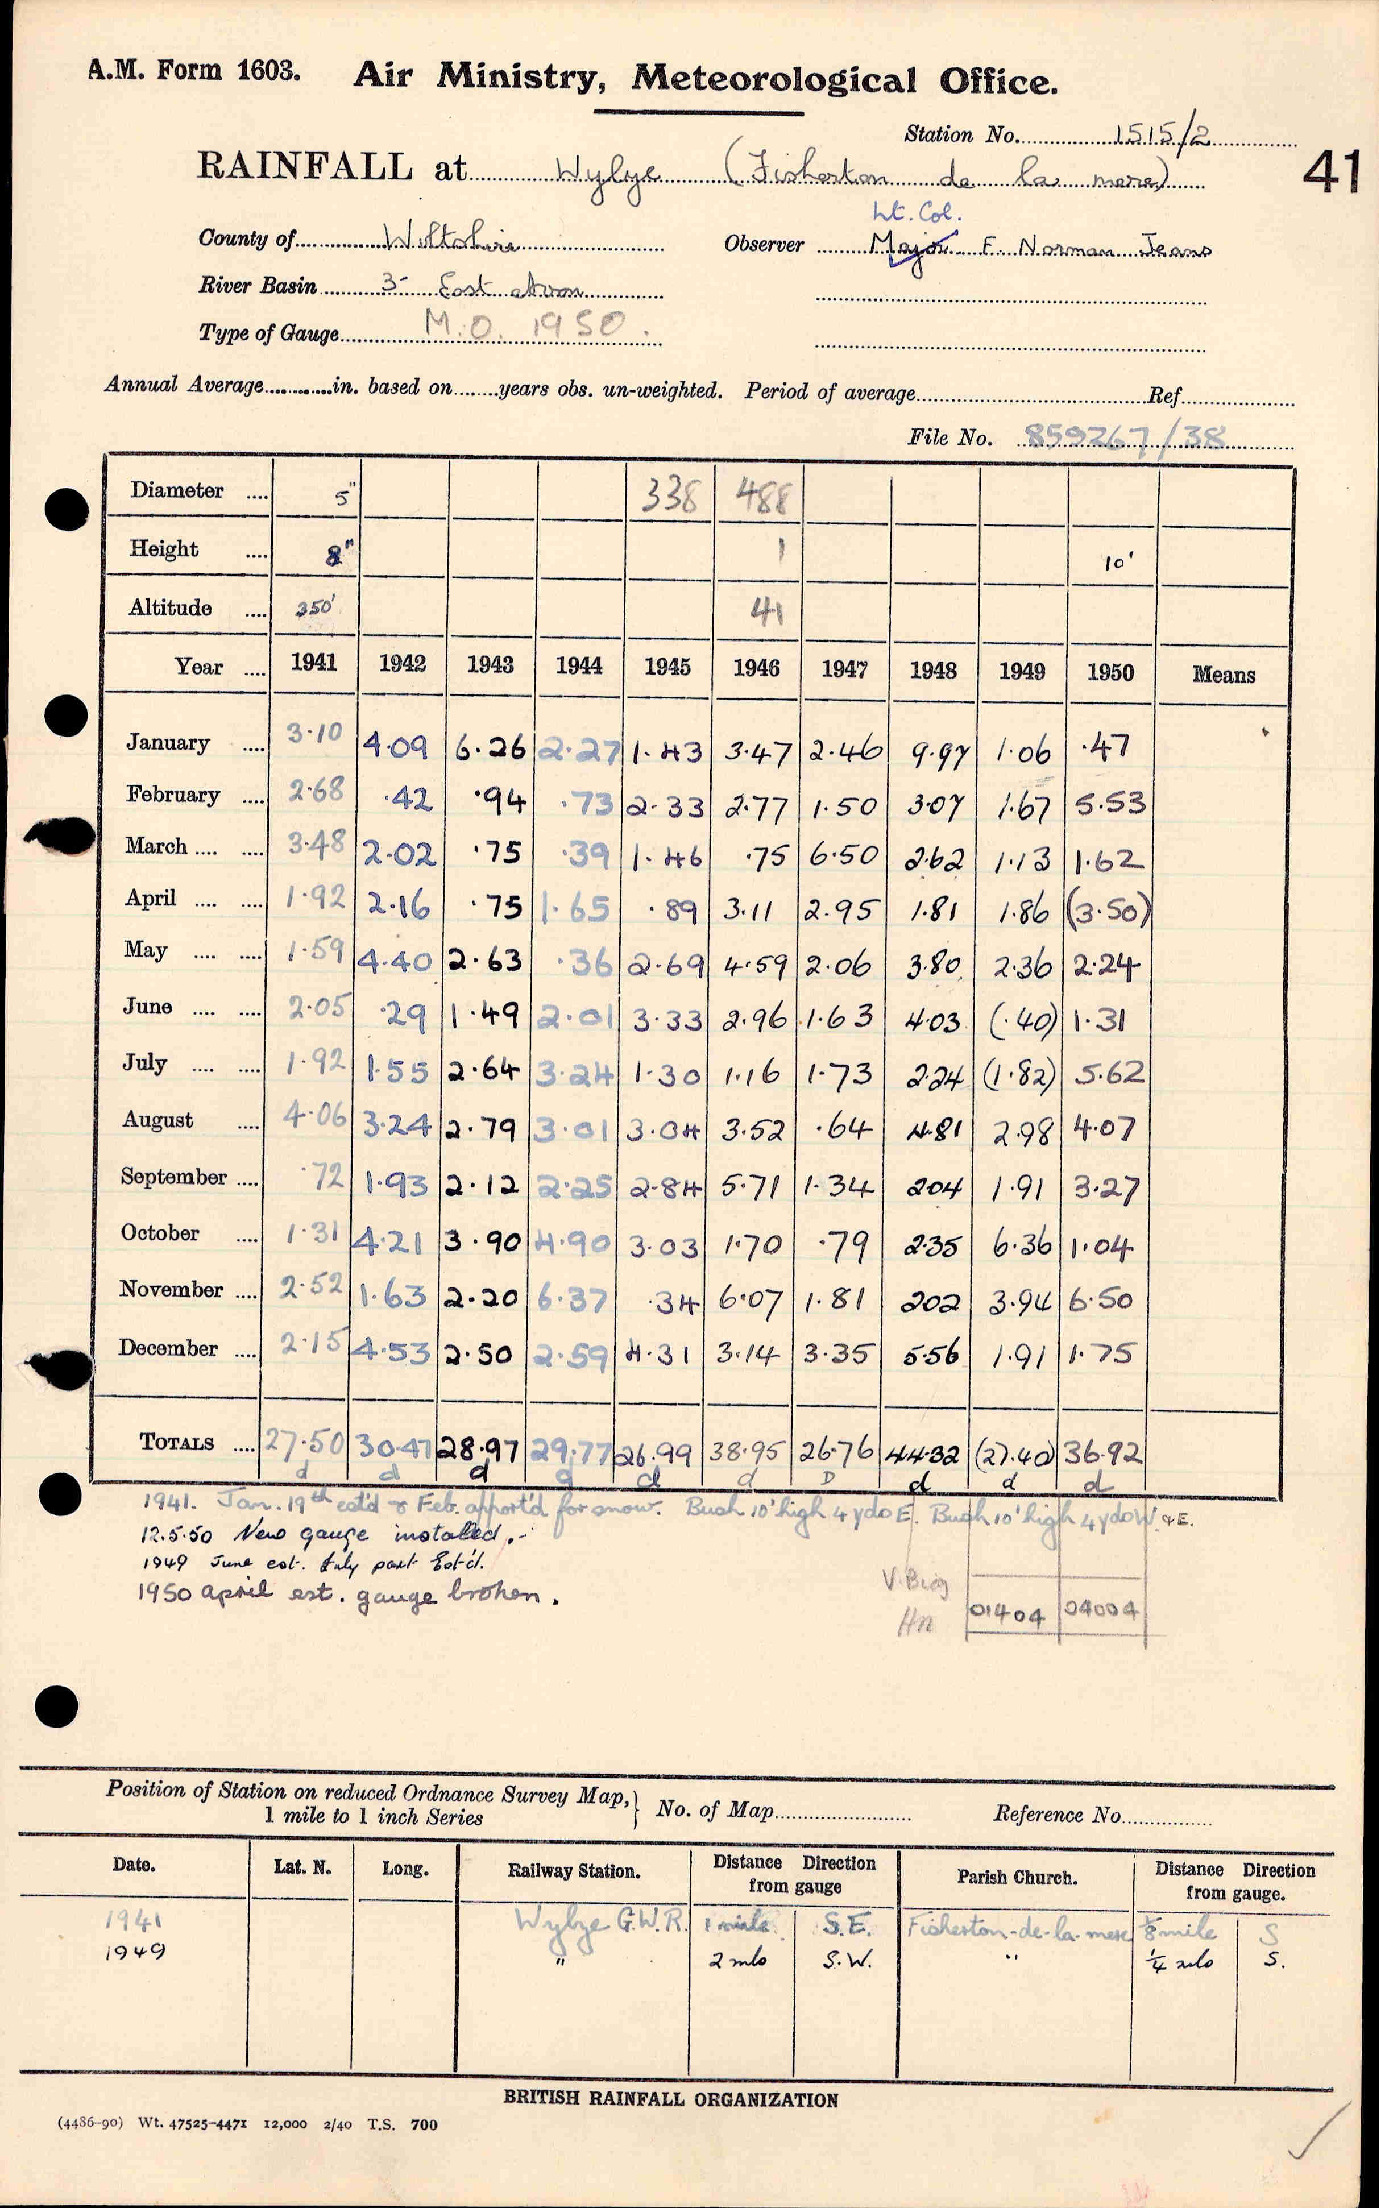 A.M. Form 1603. Air Ministry, Meteorological Office.
Station No. 1515/2
RAINFALL at Wylye (Fisherton de la mere) 41
Lt. Col.
County of Wiltshire Observer Major F. Norman Jeans
River Basin 3- East Avon
Type of Gauge M.O. 1950.
Annual Average in. based on years obs. un-weighted. Period of average Ref
File No. 859267/38
Diameter 5" 338 488
Height 8" 1 10'
Altitude 350' 41
Year 1941 1942 1943 1944 1945 1946 1947 1948 1949 1950 Means
January 3.10 4.09 6.26 2.27 1.43 3.47 2.46 9.97 1.06 .47
February 2.68 .42 .94 .73 2.33 2.77 1.50 3.07 1.67 5.53
March 3.48 2.02 .75 .39 1.46 .75 6.50 2.62 1.13 1.62
April 1.92 2.16 .75 1.65 .89 3.11 2.95 1.81 1.86 (3.50)
May 1.59 4.40 2.63 .36 2.69 4.59 2.06 3.80 2.36 2.24
June 2.05 .29 1.49 2.01 3.33 2.96 1.63 4.03 (.40) 1.31
July 1.92 1.55 2.64 3.24 1.30 1.16 1.73 2.24 (1.82) 5.62
August 4.06 3.24 2.79 3.01 3.04 3.52 .64 4.81 2.98 4.07
September .72 1.93 2.12 2.25 2.84 5.71 1.34 2.04 1.91 3.27
October 1.31 4.21 3.90 4.90 3.03 1.70 .79 2.35 6.36 1.04
November 2.52 1.63 2.20 6.37 .34 6.07 1.81 2.02 3.94 6.50
December 2.15 4.53 2.50 2.59 4.31 3.14 3.35 5.56 1.91 1.75
TOTALS 27.50 30.47 28.97 29.77 26.99 38.95 26.76 44.32 (27.40) 36.92
d d d d d d D d d d
1941. Jan. 19th est'd & Feb. apport'd for snow. Bush 10' high 4 yds E. Bush 10' high 4 yds W. & E.
12.5.50 New gauge installed.-
1949 June est. July part Est'd.
1950 April est. gauge broken.
Hn 01404 04004
Position of Station on reduced Ordnance Survey Map, 1 mile to 1 inch Series } No. of Map Reference No.
Date. Lat. N. Long. Railway Station. Distance Direction from gauge Parish Church. Distance Direction from gauge.
1941 Wylye G.W.R. 1 mile. S.E. Fisherton-de-la-mere 1/8 mile S
1949 " 2 mls S.W. " 1/4 mls S.
BRITISH RAINFALL ORGANIZATION
(4486-90) Wt. 47525-4471 12,000 2/40 T.S. 700